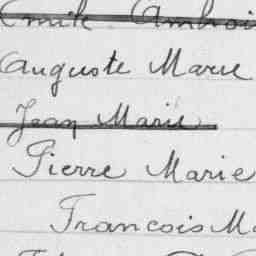 Emile Ambroi
Auguste Marie
Jean Marie
Pierre Marie
Francois Ma